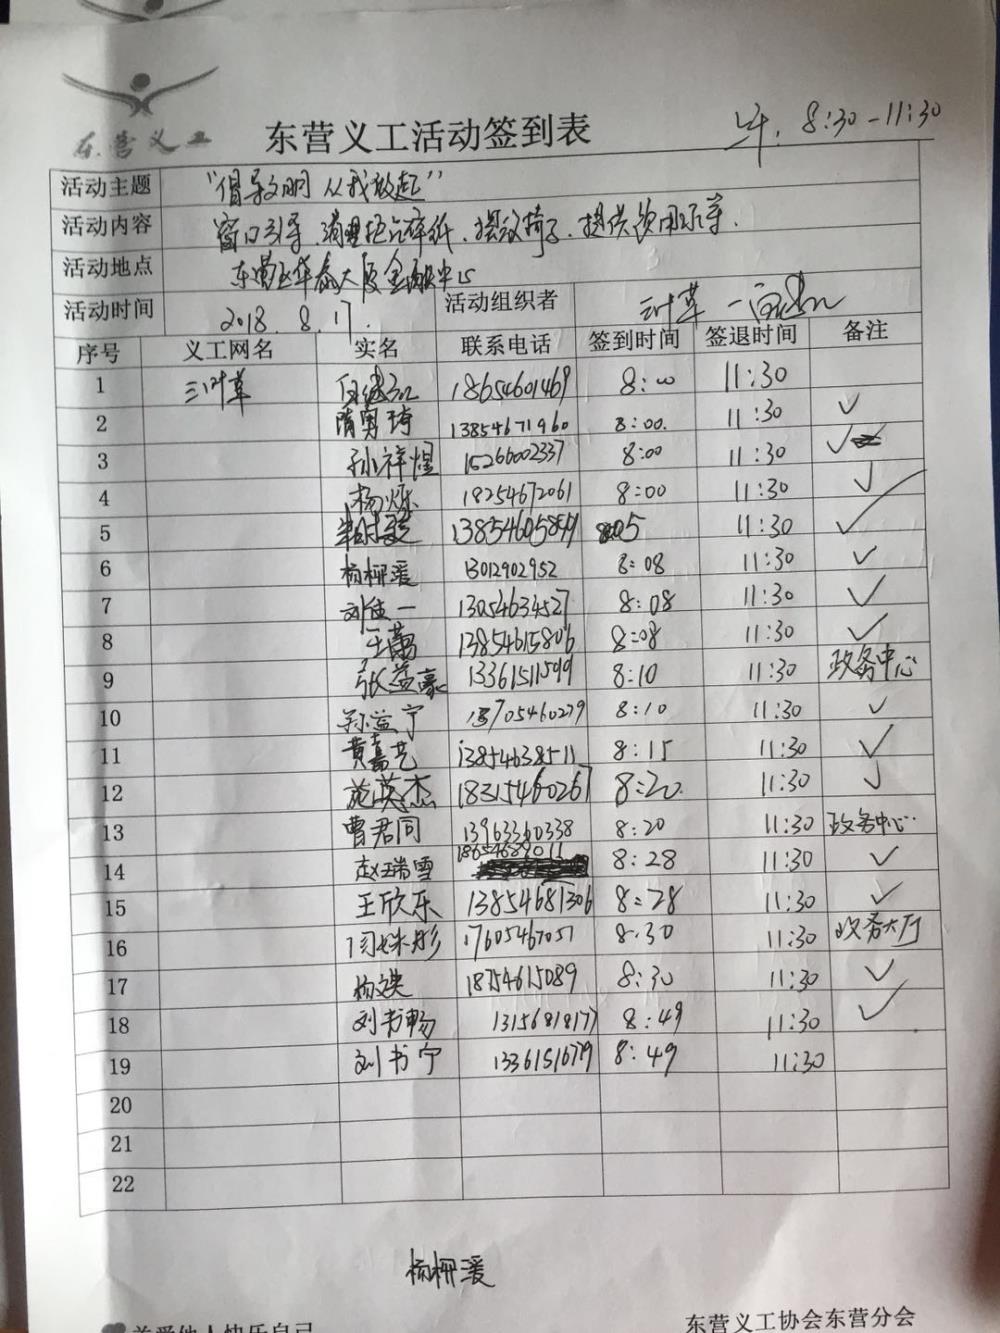 东营义工
东营义工活动签到表
上午. 8:30-11:30
活动主题 “倡导文明 从我做起”
活动内容 窗口引导、清理 碎纸、摆放椅子、提供饮用水等.
活动地点 东营区华泰大厦金融中心
活动时间 2018.8.17. 活动组织者 三叶草
序号 义工网名 实名 联系电话 签到时间 签退时间 备注
1 三叶草 18654601469 8:00 11:30
2 隋男琦 13854671960 8:00. 11:30 ✓
3 孙祥煜 15266002337 8:00 11:30 ✓
4 杨烁 18254672061 8:00 11:30 ✓
5 8:05 11:30 ✓
6 杨栅湲 13012902952 8:08 11:30 ✓
7 刘佳一 13054634527 8:08 11:30 ✓
8 王菡 13854615806 8:08 11:30 ✓
9 张益豪 13361511599 8:10 11:30 政务中心
10 孙益宁 13705460279 8:10 11:30 ✓
11 黄嘉艺 13854638511 8:15 11:30 ✓
12 施英杰 18315460267 8:20. 11:30 ✓
13 曹君同 13963360338 8:20 11:30 政务中心
14 赵瑞雪 18654689011 8:28 11:30 ✓
15 王欣乐 13854681306 8:28 11:30 ✓
16 闫姝彤 17605467051 8:30 11:30 政务大厅
17 18754615089 8:30 11:30 ✓
18 刘书畅 13156818177 8:49 11:30 ✓
19 刘书宁 13361515679 8:49 11:30
20
21
22
杨栅湲
关爱他人快乐自己
东营义工协会东营分会